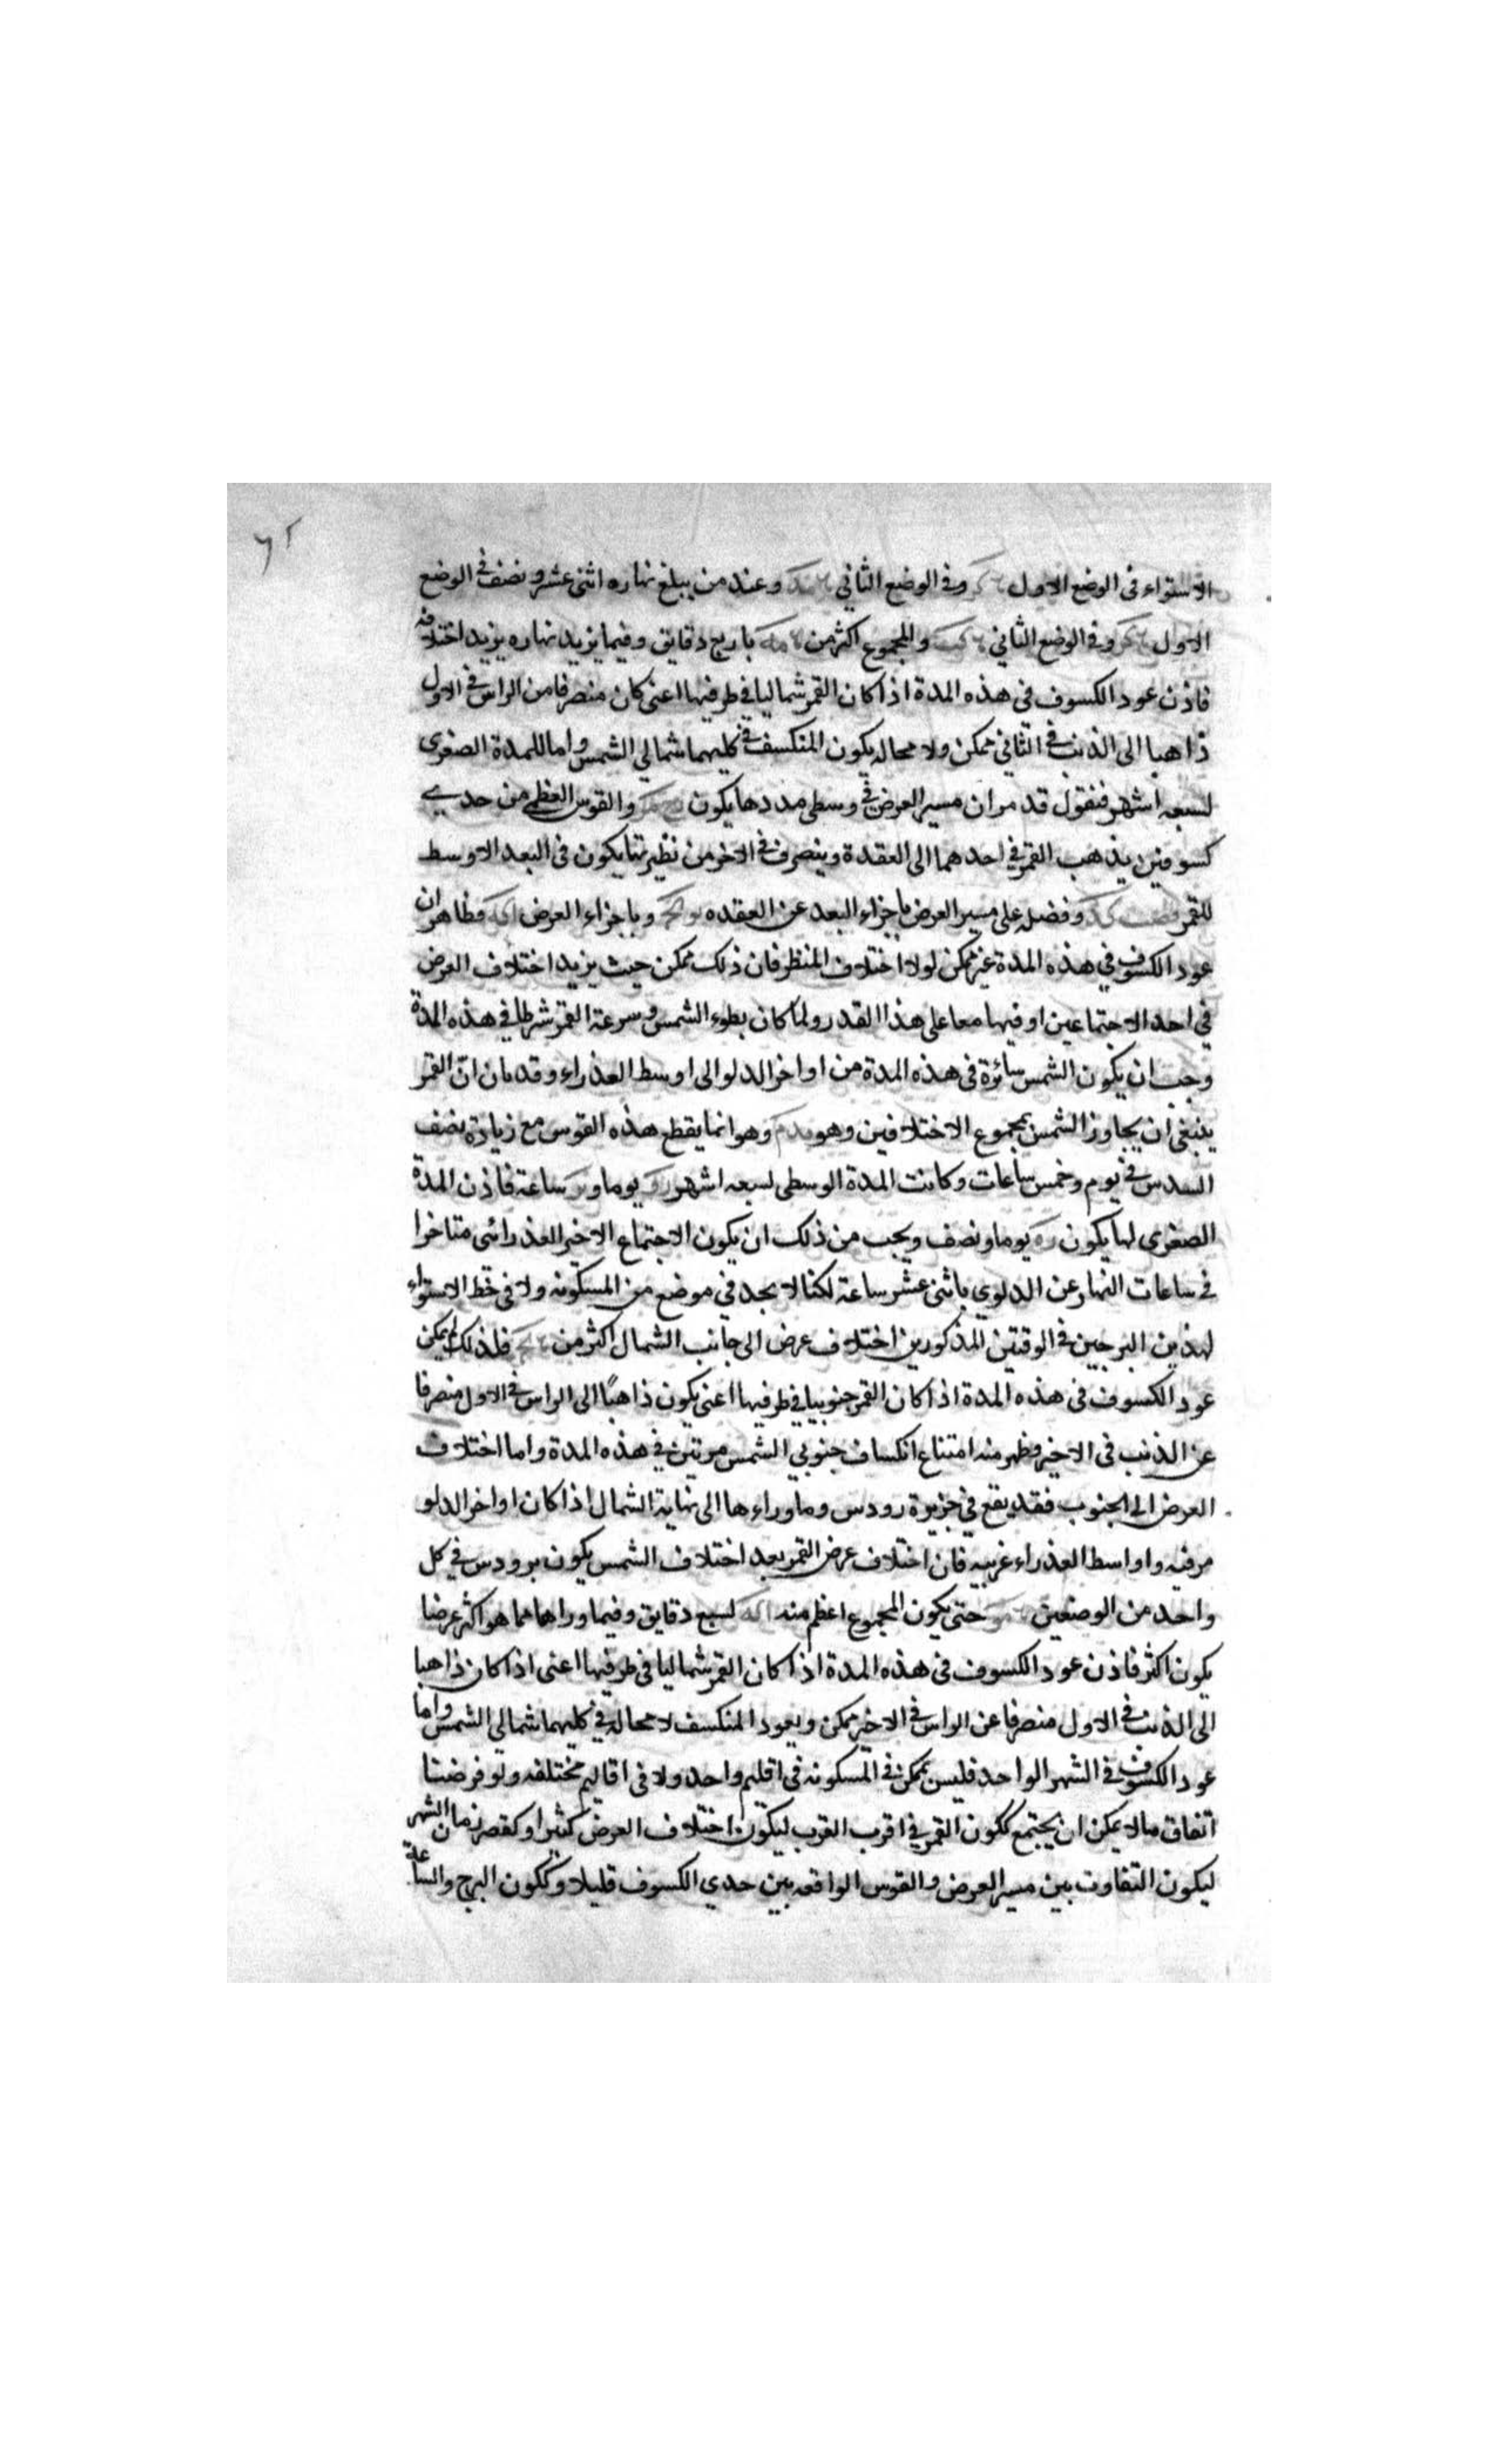 ٦٢
الاستواء فى الوضع الاول وفى الوضع الثانى وعند من يبلغ نهاره اثنى عشر ونصف فى الوضع
الاول وفى الوضع الثانى والمجموع اكثر من باربع دقايق وفيما يزيد نهاره يزيد اختلافه
فاذن عود الكسوف فى هذه المدة اذا كان القمر شماليا فى طرفيها اعنى كان منصرفا من الراس فى الاول
ذاهبا الى الذنب فى الثانى ممكن ولا محاله يكون المنكسف فى كليهما شمالي الشمس واما للمدة الصغرى
لسبعه اشهر فنقول قد مر ان مسير العرض فى وسطى مددها يكون والقوس العظمى من حدي
كسوفين يذهب القمر فى احدهما الى العقدة وينصرف فى الاخر من نظيرتها يكون فى البعد الاوسط
للقمر وفضله على مسير العرض باجزاء البعد عن العقده وباجزاء العرض فظاهر ان
عود الكسوف فى هذه المدة غير ممكن لولا اختلاف المنظر فان ذلك ممكن حيث يزيد اختلاف العرض
فى احد الاجتماعين او فيهما معا على هذا القدر ولما كان بطوء الشمس وسرعة القمر شرطا فى هذه المدة
وجب ان يكون الشمس سائرة فى هذه المدة من اواخر الدلو الى اوسط العذراء وقد بان انّ القمر
ينبغى ان يجاوز الشمس بمجموع الاختلافين وهو وهو انما يقطع هذه القوس مع زيادة نصف
السدس فى يوم وخمس ساعات وكانت المدة الوسطى لسبعه اشهر يوما و ساعة فاذن المدة
الصغرى لها يكون يوما ونصف ويجب من ذلك ان يكون الاجتماع الاخير العذرائى متاخرا
فى ساعات النهار عن الدلوى باثنى عشر ساعة لكنا لا نجد فى موضع من المسكونه ولا فى خط الاستواء
لهذين البرجين فى الوقتين المذكورين اختلاف عرض الى جانب الشمال اكثر من فلذلك لم يمكن
عود الكسوف فى هذه المدة اذا كان القمر جنوبيا فى طرفيها اعنى يكون ذاهبًا الى الراس فى الاول منصرفا
عن الذنب فى الاخير وظهر منه امتناع انكساف جنوبي الشمس مرتين فى هذه المدة واما اختلاف
العرض الى الجنوب فقد يقع فى جزيرة رودس وما وراءها الى نهاية الشمال اذا كان اواخر الدلو
مرقيه واواسط العذراء غربيه فان اختلاف عرض القمر بعد اختلاف الشمس يكون برودس فى كل
واحد من الوضعين حتى يكون المجموع اعظم منه لسبع دقايق وفيما وراها مما هو اكثر عرضا
يكون اكثر فاذن عود الكسوف فى هذه المدة اذا كان القمر شماليا فى طرفيها اعنى اذا كان ذاهبا
الى الذنب فى الاول منصرفا عن الراس فى الاخير ممكن ويعود المنكسف لا محالة فى كليهما شمالى الشمس واما
عود الكسوف فى الشهر الواحد فليس يمكن فى المسكونه فى اقليم واحد ولا فى اقاليم مختلفه ولو فرضنا
اتفاق ما لا يمكن ان يجتمع ككون القمر فى اقرب القرب ليكون اختلاف العرض كثيرا وكقصر زمان الشهر
ليكون التفاوت بين مسير العرض والقوس الواقعه بين حدي الكسوف قليلا وككون البرج والساعة